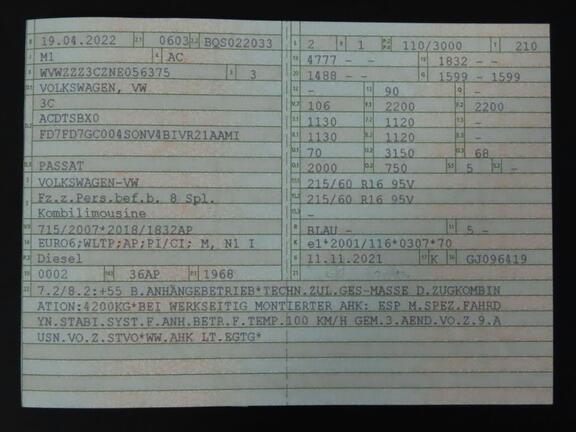 B 19.04.2022 2.1 0603 2.2 BQS022033
J M1 4 AC
E WVWZZZ3CZNE056375 3 3
D.1 VOLKSWAGEN, VW
3C
D.2 ACDTSBX0
FD7FD7GC004SONV4BIVR21AAMI
D.3 PASSAT
2 VOLKSWAGEN-VW
5 Fz.z.Pers.bef.b. 8 Spl.
Kombilimousine
V.9 715/2007*2018/1832AP
14 EURO6;WLTP;AP;PI/CI; M, N1 I
P.3 Diesel
10 0002 14.1 36AP P.1 1968
L 2 9 1 P.2/P.4 110/3000 T 210
18 4777 - - 19 1832 - -
20 1488 - - G 1599 - 1599
12 - 13 90 Q -
V.7 106 F.1 2200 F.2 2200
7.1 1130 7.2 1120 7.3 -
8.1 1130 8.2 1120 8.3 -
U.1 70 U.2 3150 U.3 68
O.1 2000 O.2 750 S.1 5 S.2 -
15.1 215/60 R16 95V
15.2 215/60 R16 95V
15.3 -
R BLAU - 11 5 -
K e1*2001/116*0307*70
6 11.11.2021 17 K 16 GJ096419
21
22 7.2/8.2:+55 B.ANHÄNGEBETRIEB*TECHN.ZUL.GES-MASSE D.ZUGKOMBIN
ATION:4200KG*BEI WERKSEITIG MONTIERTER AHK: ESP M.SPEZ.FAHRD
YN.STABI.SYST.F.ANH.BETR.F.TEMP.100 KM/H GEM.3.AEND.VO.Z.9.A
USN.VO.Z.STVO*WW.AHK LT.EGTG*